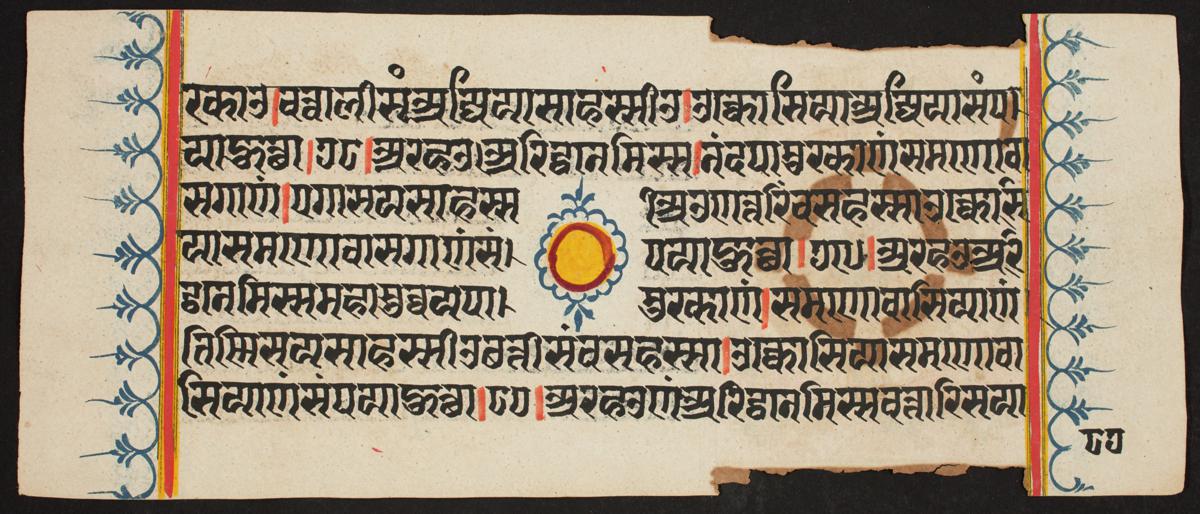 रकाउ।चत्तालीसं अज्जियासाहस्सीउ।उक्कोसिया अज्जियासंप
याहुत्था।७८।अरहउ अरिट्ठनेमिस्स।नंदपामुरकाणं समणोवा
सगाणं।एगासयसाहस्स अउणत्तरिंचसहस्सा उक्कोसि
यासमणोवासगाणंसं पयाहुत्था।७९।अरहउ अरि
ट्ठनेमिस्समहासुव्वयापा मुरकाणं।समणोवासियाणं
तिन्निसयसाहस्सीउ छत्तीसंचसहस्सा।उक्कोसियासमणोवा
सियाणंसंपयाहुत्था।८०।अरहउणं अरिट्ठनेमिस्सचत्तारिसया